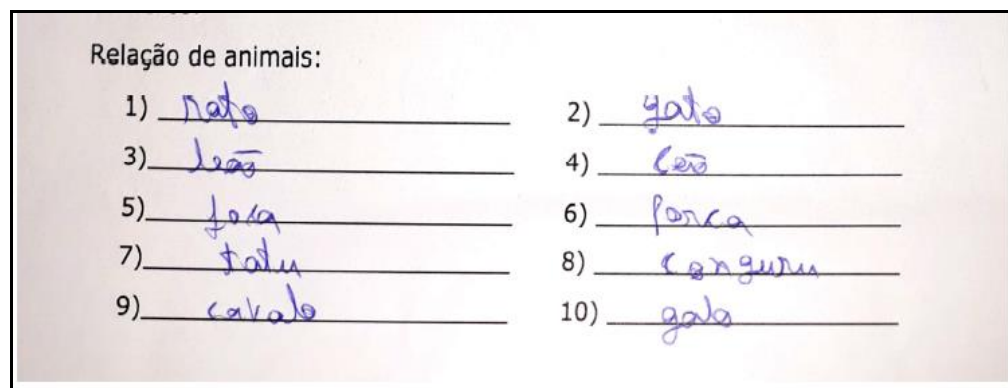 Relação de animais:
1) rato 2) gato
3) leão 4) Cão
5) foca 6) porca
7) tatu 8) canguru
9) cavalo 10) galo